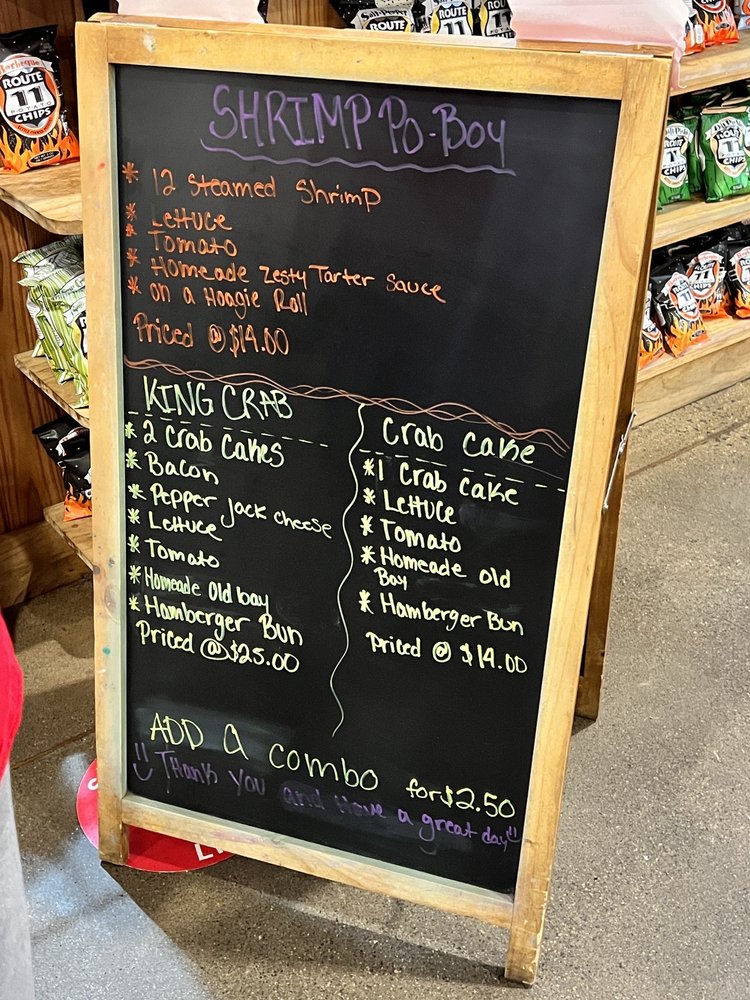 SHRIMP PO-BOY
* 12 steamed shrimp
* Lettuce
* Tomato
* Homeade zesty Tarter sauce
* on a Hoagie Roll
Priced @ $14.00
KING CRAB
* 2 Crab Cakes
* Bacon
* Pepper jack cheese
* Lettuce
* Tomato
* Homeade old bay
* Hamberger Bun
Priced @ $25.00
Crab cake
* 1 Crab cake
* Lettuce
* Tomato
* Homeade old
Bay
* Hamberger Bun
Priced @ $14.00
ADD a combo for $2.50
Thank you and Have a great day
Barbeque
ROUTE
11
POTATO
CHIPS
ROUTE
11
ROUTE
11
CHIPS